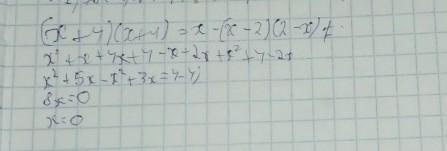 (x+4)(x+4) = x-(x-2)(2-x)
x²+x+4x+4-x-2x+x²+4-2x
x²+5x-x²+3x=4-4
8x=0
x=0